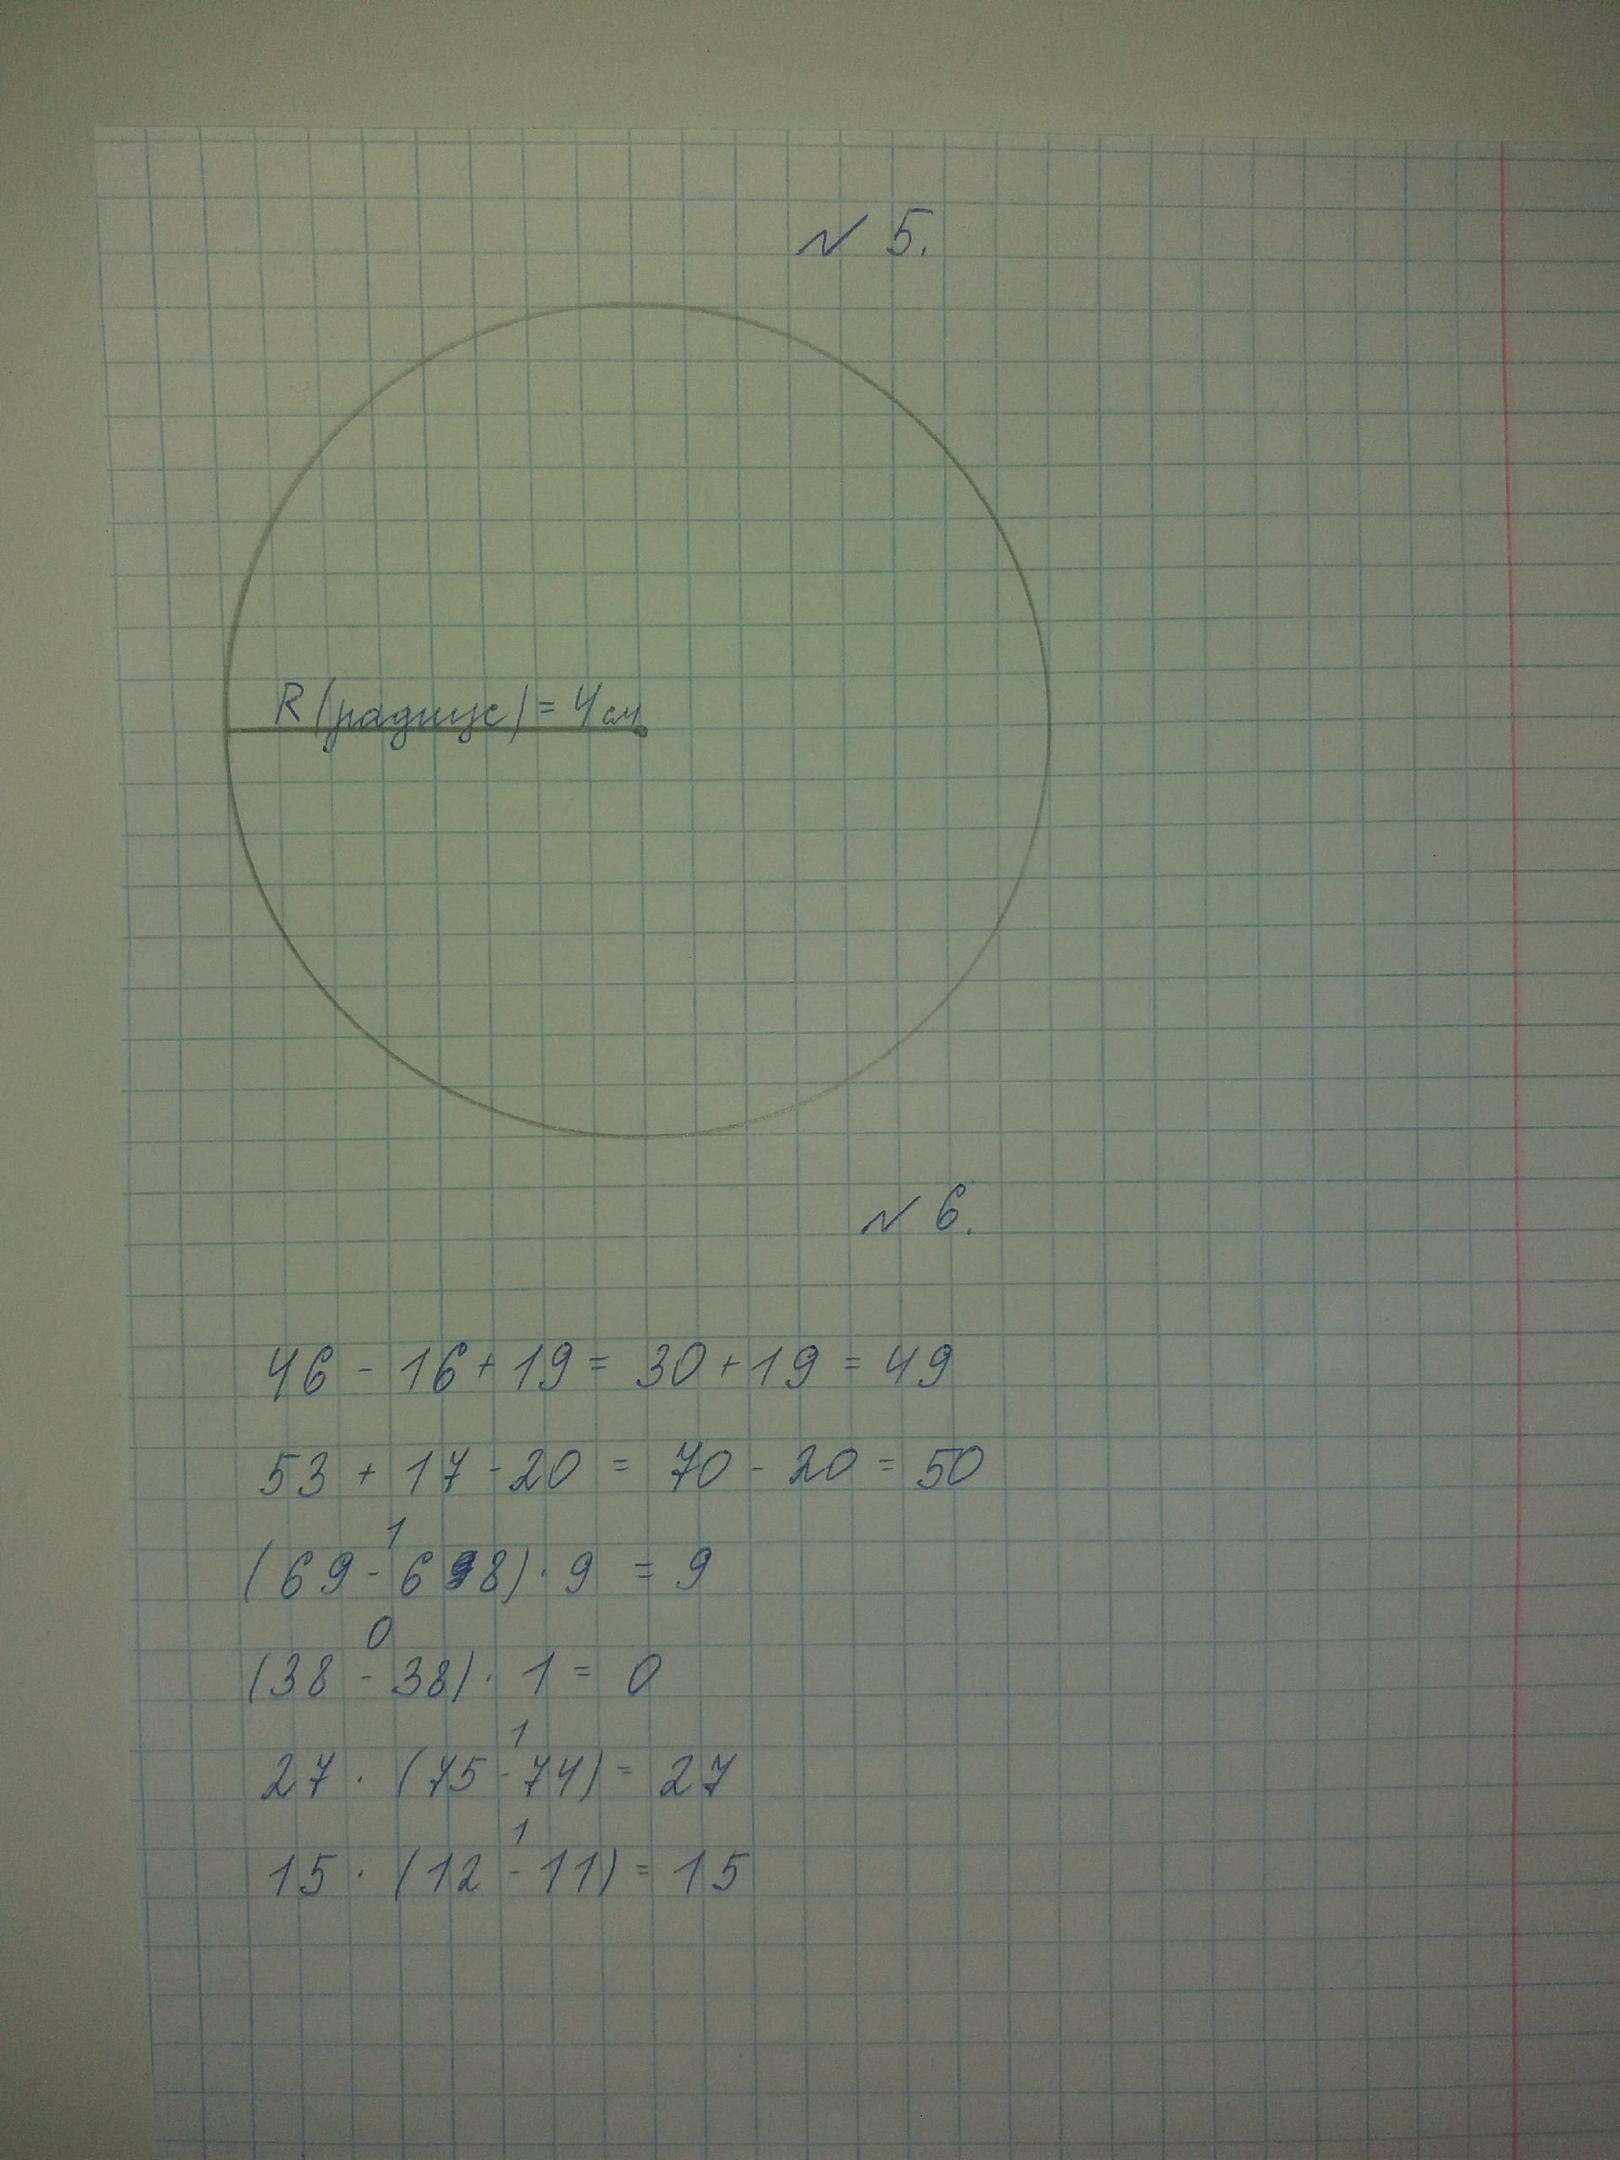 № 5.
R (радиус) = 4 см
№ 6.
46 - 16 + 19 = 30 + 19 = 49
53 + 17 - 20 = 70 - 20 = 50
1
(69 - 68) · 9 = 9
0
(38 - 38) · 1 = 0
1
27 · (75 - 74) = 27
1
15 · (12 - 11) = 15